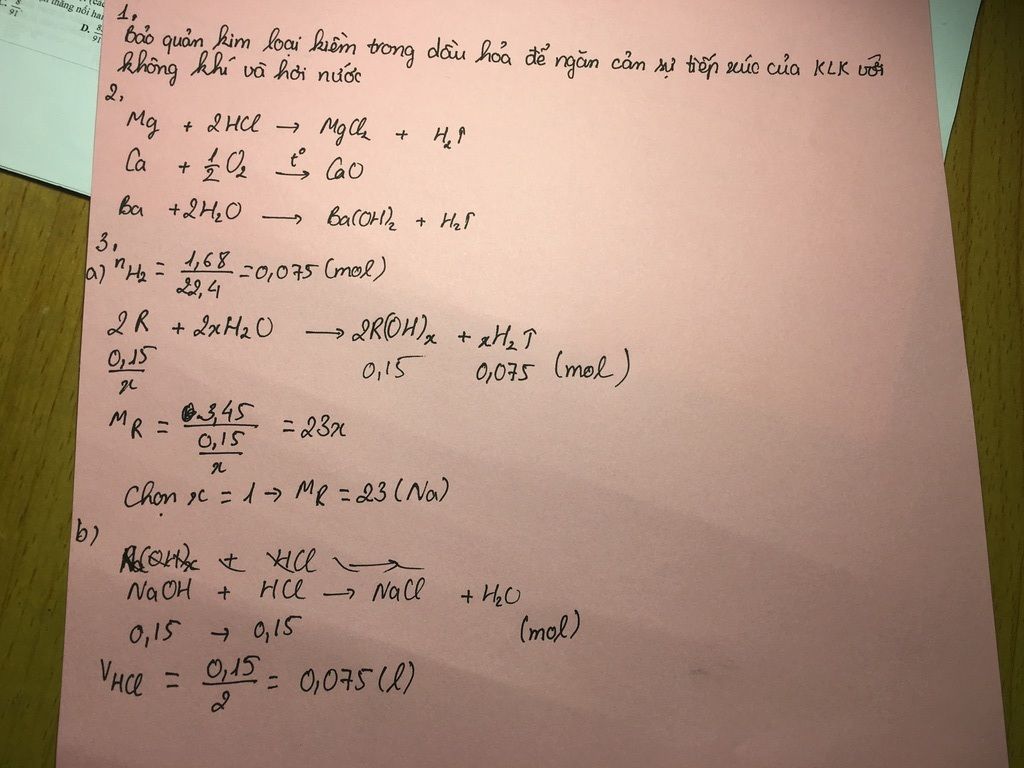 thăng nối hai
D. 8/91
8/91
1,
Bảo quản kim loại kiềm trong dầu hỏa để ngăn cản sự tiếp xúc của KLK với
không khí và hơi nước
2,
Mg + 2HCl → MgCl₂ + H₂↑
Ca + 1/2 O₂ →(t°) CaO
Ba + 2H₂O → Ba(OH)₂ + H₂↑
3,
a) nH₂ = 1,68/22,4 = 0,075 (mol)
2R + 2xH₂O → 2R(OH)ₓ + xH₂↑
0,15/x 0,15 0,075 (mol)
MR = 3,45/(0,15/x) = 23x
Chọn x = 1 → MR = 23 (Na)
b)
NaOH + HCl → NaCl + H₂O
0,15 → 0,15 (mol)
VHCl = 0,15/2 = 0,075 (l)